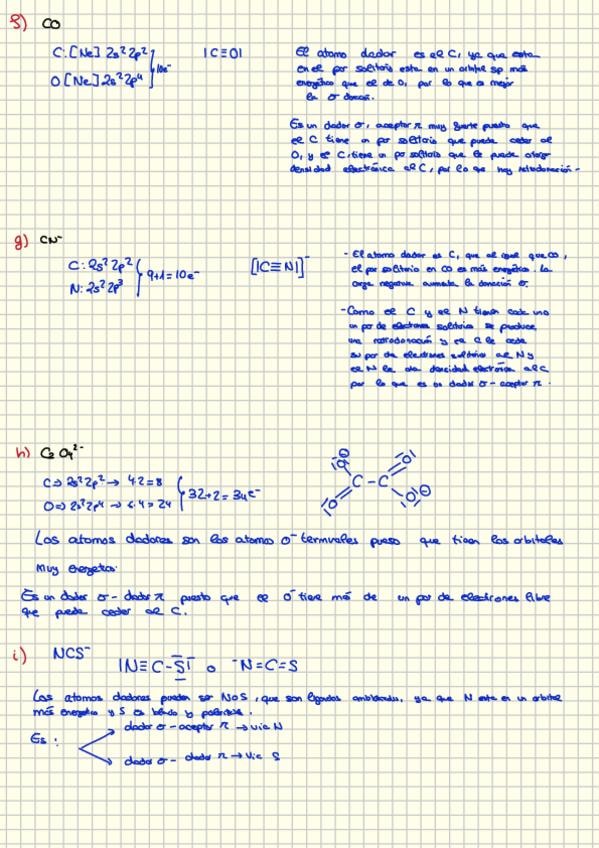 f) CO
C: [Ne] 2s² 2p²
O [Ne] 2s² 2p⁴
10e⁻
|C≡O|
El atomo dador es el C, ya que esta
en el par solitario esta en un orbital sp más
energético que el de O, por lo que es mejor
la σ donación.
Es un dador σ, aceptor π muy fuerte puesto que
el C tiene un par solitario que puede ceder al
O, y el C tiene un par solitario que le puede
densidad electrónica al C, por lo que hay retrodonación.
g) CN⁻
C: 2s² 2p²
N: 2s² 2p³
9+1=10e⁻
[|C≡N|]⁻
- El atomo dador es C, que al igual que CO,
el par solitario en CO es más energético. La
carga negativa aumenta la donación σ.
- Como el C y el N tienen cada uno
un par de electrones solitarios se produce
una retrodonación y el C le cede
su par de electrones solitario al N y
el N le da densidad electrónica al C
por lo que es un dador σ - aceptor π.
h) C₂O₄²⁻
C => 2s² 2p² → 4·2=8
O => 2s² 2p⁴ → 6·4=24
32+2=34e⁻
C - C
Los atomos dadores son los atomos O⁻ terminales puesto que tienen los orbitales
muy energetics.
Es un dador σ - dador π puesto que el O⁻ tiene más de un par de electrones libre
que puede ceder al C.
i) NCS⁻
|N≡C-S|⁻ o ⁻N=C=S
Los atomos dadores pueden ser N o S, que son ligandos ambidentados, ya que N esta en un orbital
más energetico y S es blando y polarizable.
Es:
dador σ - aceptor π → vía N
dador σ - dador π → vía S